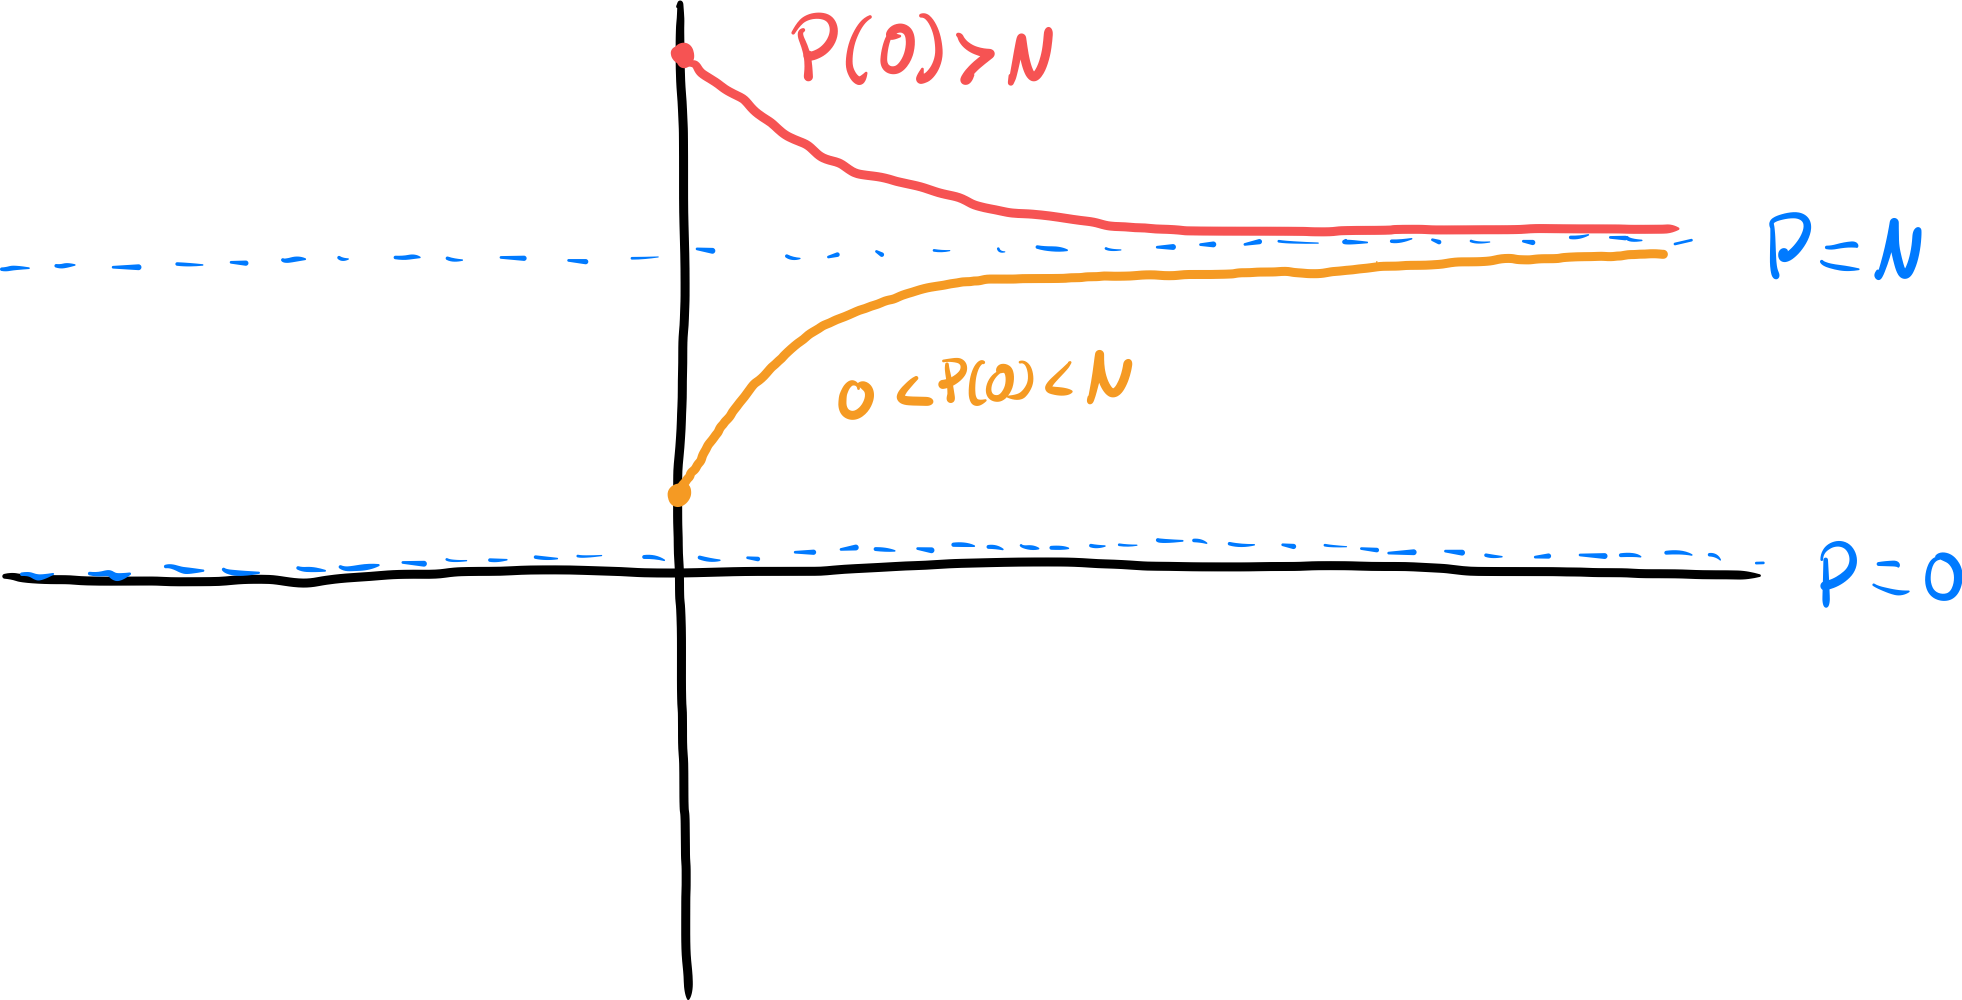 P(0) > N
P = N
0 < P(0) < N
P = 0